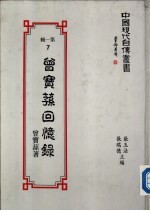 中國現代自傳叢書
第一輯
7
曾寶蓀回憶錄
曾寶蓀著
張玉法
張瑞德 主編